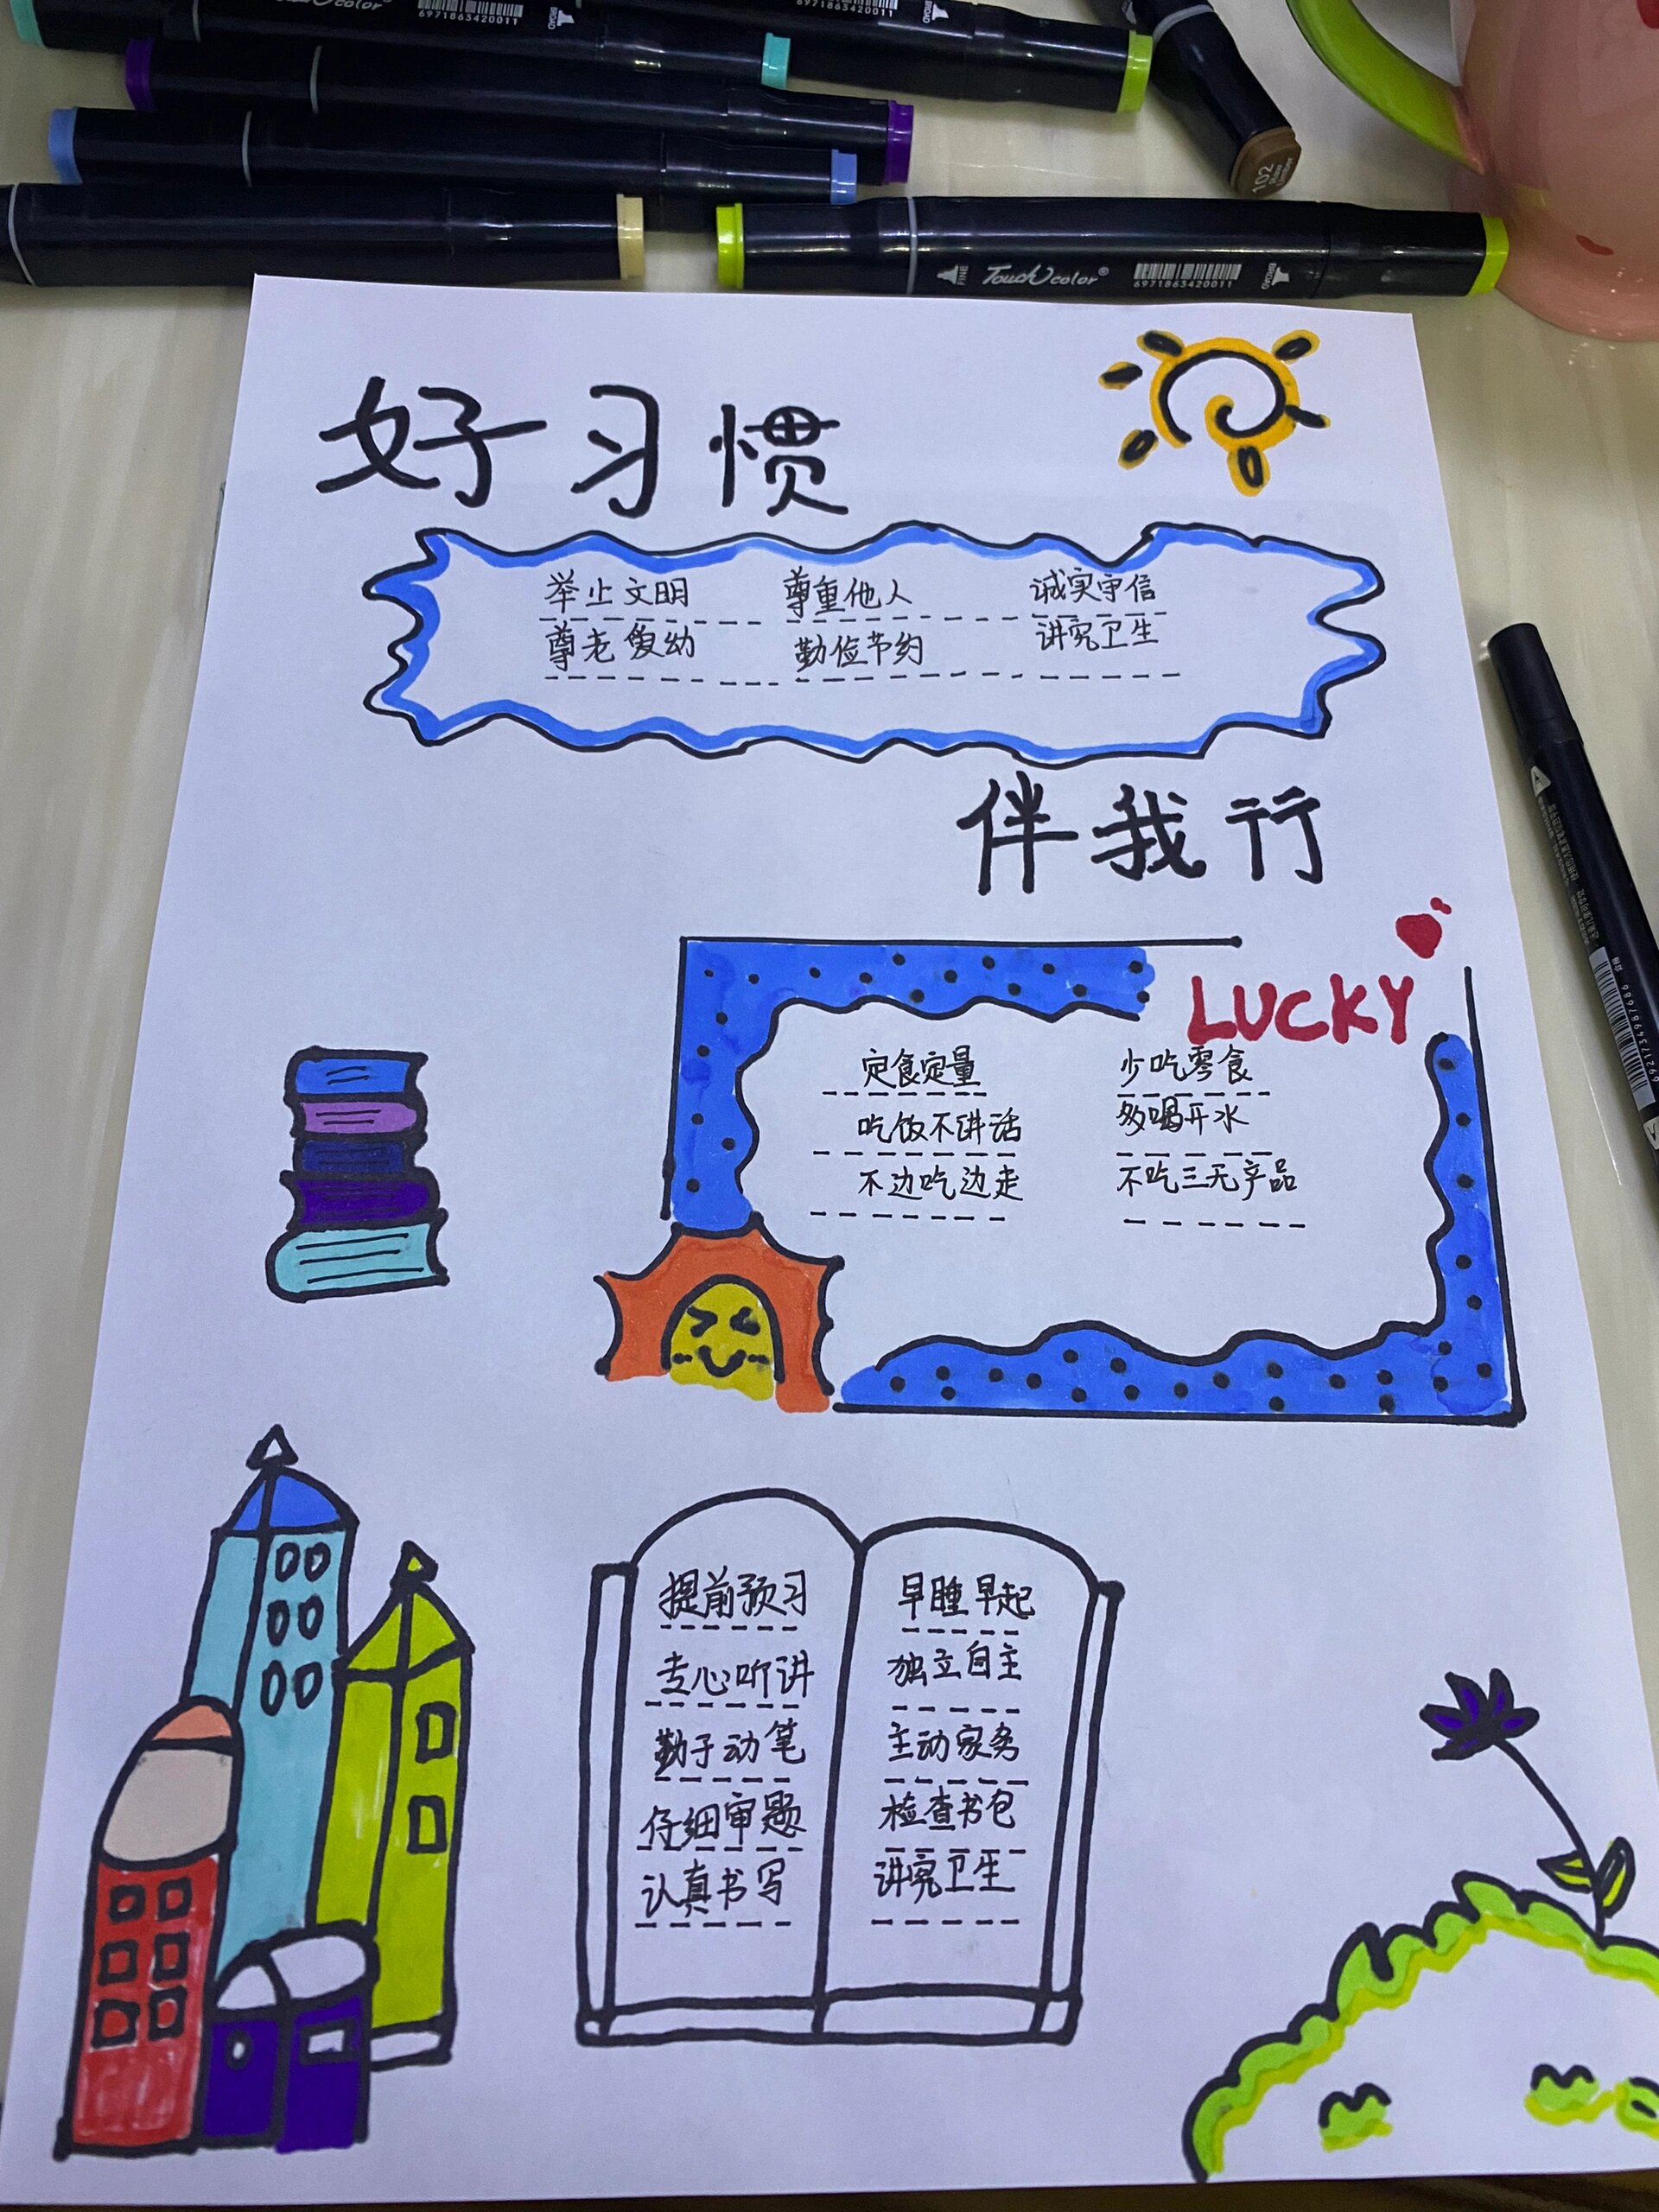 Touch color
6971863420011
BROAD
6971863420011
BROAD
102
FINE Touch color® 6971863420011 BROAD
好习惯
举止文明 尊重他人 诚实守信
尊老爱幼 勤俭节约 讲究卫生
伴我行
LUCKY
定食定量 少吃零食
吃饭不讲话 多喝开水
不边吃边走 不吃三无产品
提前预习 早睡早起
专心听讲 独立自主
勤于动笔 主动家务
仔细审题 检查书包
认真书写 讲究卫生